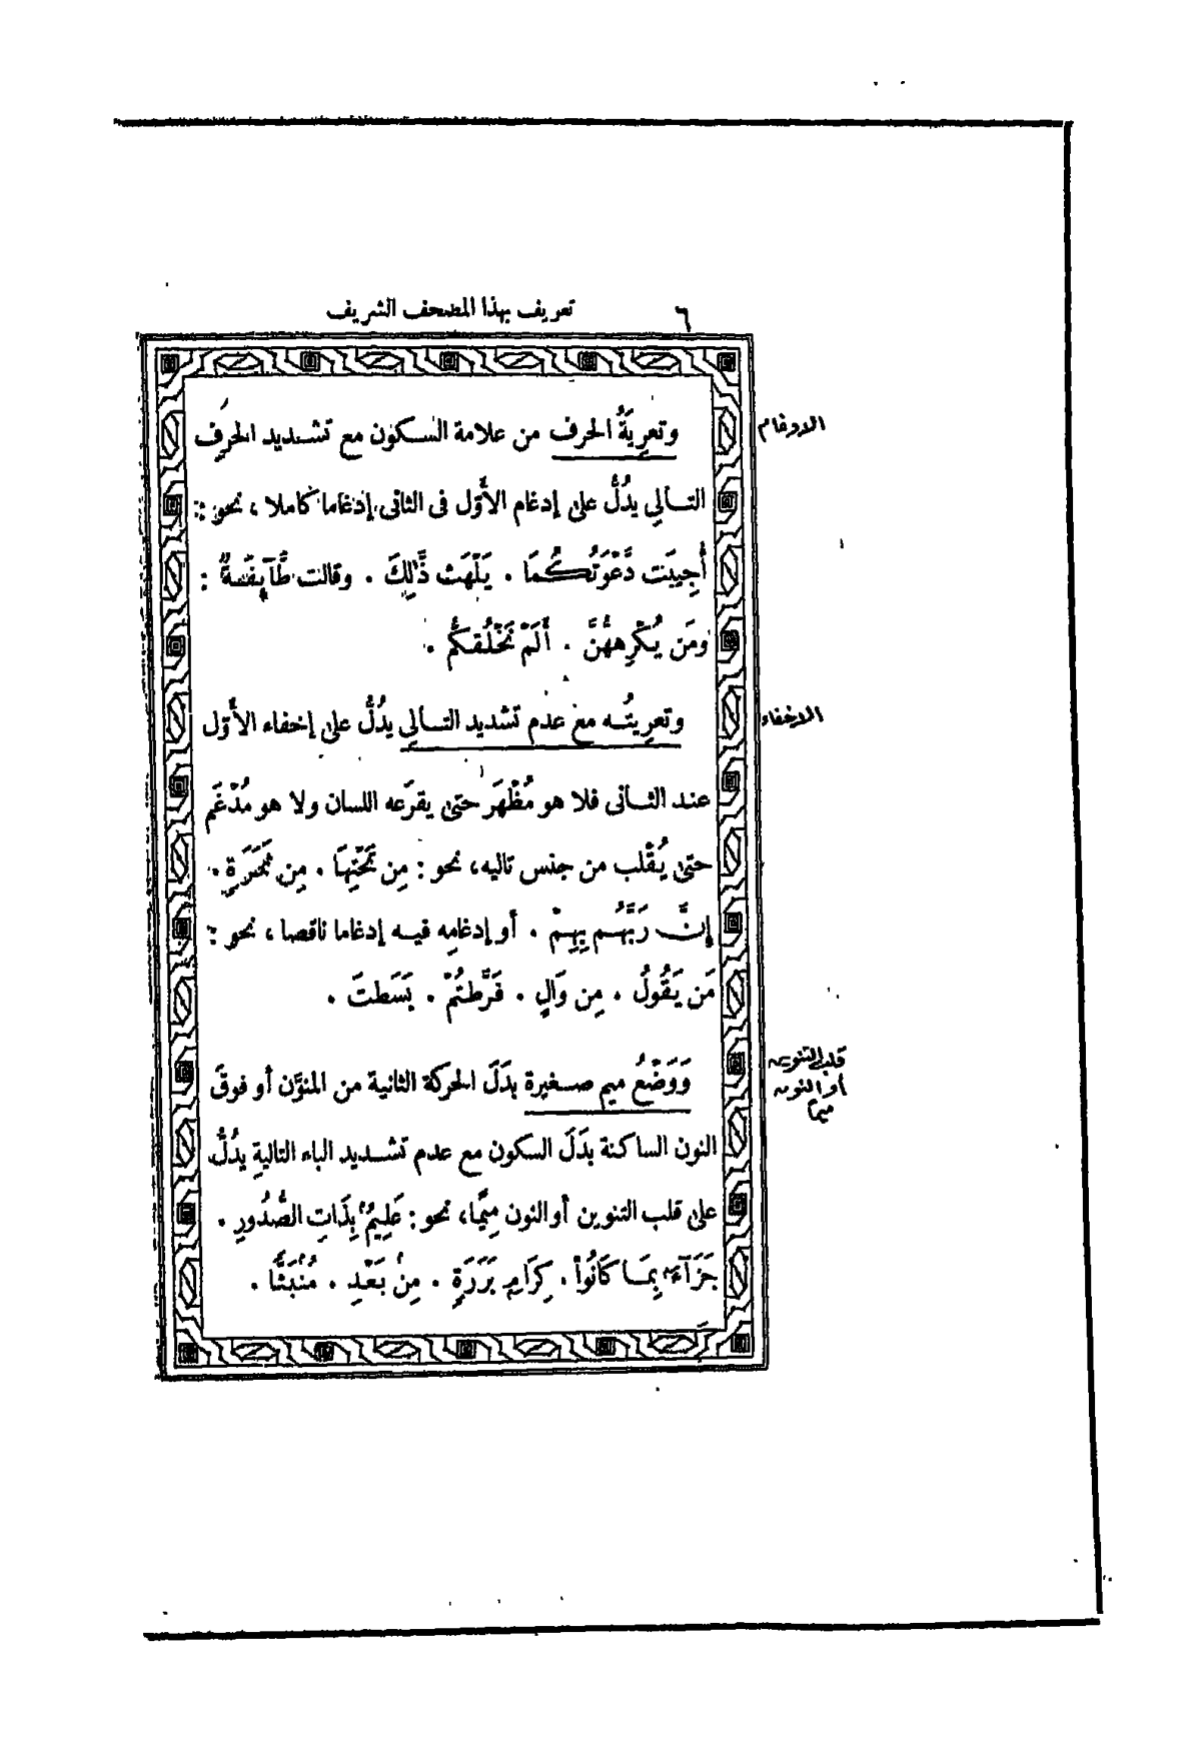 ٦
تعريف بهذا المصحف الشريف
الادغام
وتعرِيَةُ الحرف من علامة السكون مع تشديد الحرف
التالى يدُلُّ على إدغام الأوّل فى الثانى إدغاما كاملا ، نحو :
أُجِيبَت دَّعْوَتُكُمَا . يَلْهَث ذَّٰلِكَ . وقالت طَّآئِفَةٌ :
ومَن يُكْرِههُّنَّ . أَلَمْ نَخْلُقكُّم .
الاخفاء
وتعرِيتُه مع عدم تشديد التالى يدُلُّ على إخفاء الأوّل
عند الثانى فلا هو مُظْهَر حتى يقرَعه اللسان ولا هو مُدْغَم
حتى يُقْلب من جنس تاليه، نحو : مِن تَحْتِهَا . مِن ثَمَرَةٍ .
إِنَّ رَبَّهُم بِهِمْ . أو إدغامِه فيه إدغاما ناقصا ، نحو :
مَن يَقُولُ . مِن وَالٍ . فَرَّطتُمْ . بَسَطتَ .
قلب التنوين
أو النون
ميما
وَوَضْعُ ميم صغيرة بدَلَ الحركة الثانية من المنوَّن أو فوقَ
النون الساكنة بدَلَ السكون مع عدم تشديد الباء التالية يدُلُّ
على قلب التنوين أو النون مِيمًا، نحو : عَلِيمُۢ بِذَاتِ الصُّدُورِ .
جَزَآءَۢ بِمَا كَانُوا۟ . كِرَامِۭ بَرَرَةٍ . مِنۢ بَعْدِ . مُنۢبَثًّا .